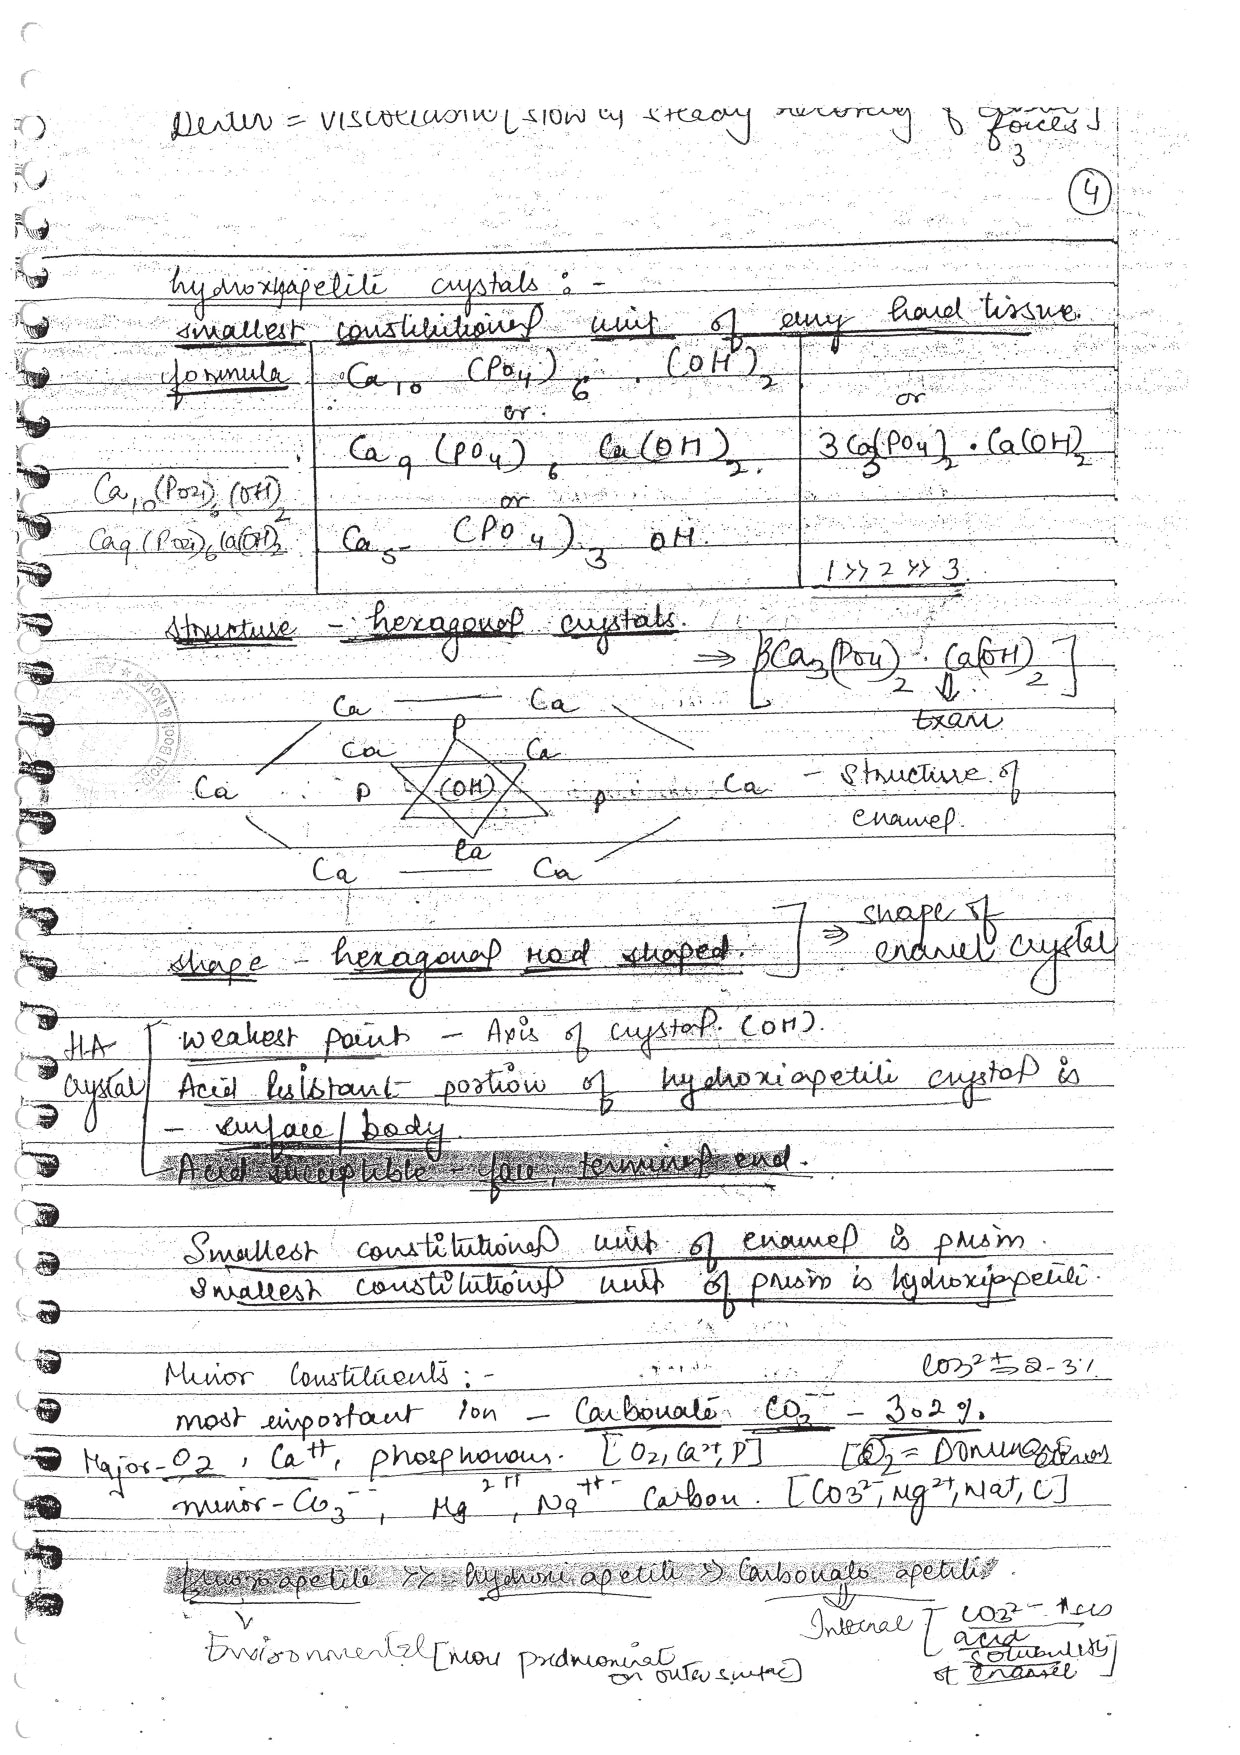 Dentin = viscoelastic [slow & steady recovery of forces]
3
4
hydroxyapetite crystals : -
smallest constitutional unit of any hard tissue.
formula Ca10 (PO4)6 . (OH)2
or or
Ca9 (PO4)6 Ca(OH)2. 3Ca3(PO4)2 . Ca(OH)2
Ca10(PO4)6(OH)2 or
Ca9(PO4)6Ca(OH)2 Ca5 (PO4)3 OH.
1 >> 2 >> 3
structure - hexagonal crystals.
⇒ [3Ca3(PO4)2 . Ca(OH)2]
Exam
Ca Ca
P
Ca Ca
Ca P (OH) P Ca - structure of
enamel.
Ca
Ca Ca
shape of
shape - hexagonal rod shaped. ] ⇒ enamel crystal
HA weakest point - Axis of crystal. (OH).
crystal Acid Resistant portion of hydroxiapetite crystal is
- surface/body.
Acid succeptible - face, terminal end.
Smallest constitutional unit of enamel is prism.
smallest constitutional unit of prism is hydroxiapetite.
Minor Constituents : - CO3 2- = 2-3%
most important ion - Carbonate CO3-- - 3.2%.
Major - O2, Ca++, phosphorous. [O2, Ca2+, P] [O2 =
minor - CO3--, Mg2++, Na++- Carbon. [CO3 2-, Mg2+, Na+, C]
fluoroapetite >> hydroxiapetite >> Carbonate apetite.
Environmental [more predominat Internal [CO3 2- - ↑ses
on outer surface] acid
solubulity]
of enamel